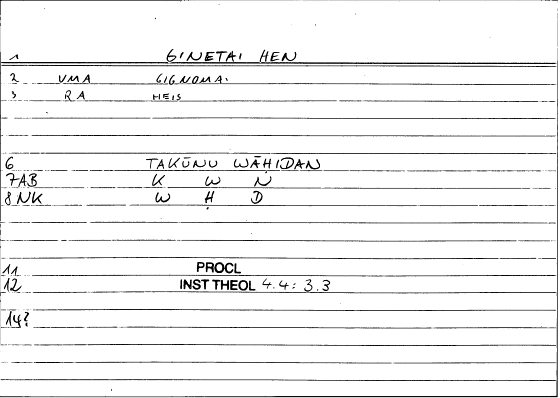 1 GINETAI HEN
2 VMA GIGNOMAI
3 RA HEIS
6 TAKŪNU WĀHIDAN
7AB K W N
8NK W Ḥ D
11 PROCL
12 INST THEOL 4.4: 3.3
14?